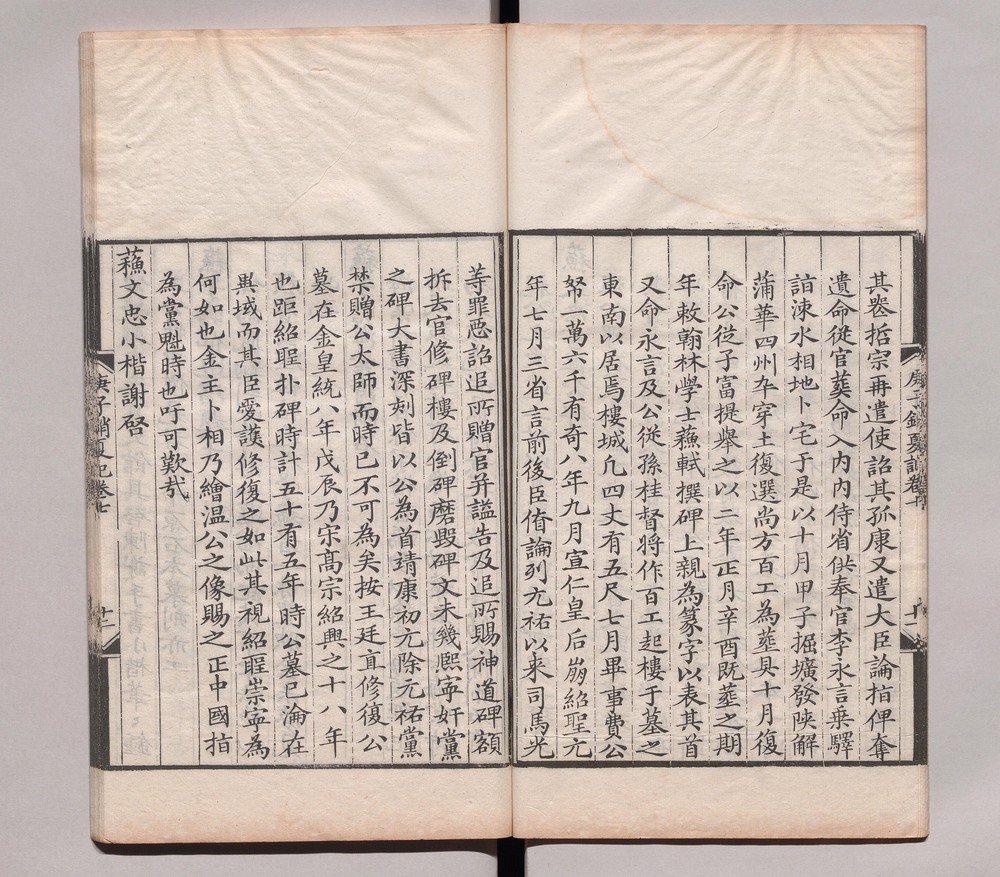 其喪哲宗再遣使詔其孤康又遣大臣論指俾奪
遺命從官葬命入内内侍省供奉官李永言乗驛
詣涑水相地卜宅于是以十月甲子掘壙發陝解
蒲華四州卒穿土復選尚方百工為葬具十月復
命公從子富提舉之以二年正月辛酉既葬之期
年敕翰林學士蘓軾撰碑上親為篆字以表其首
又命永言及公從孫桂督將作百工起樓于墓之
東南以居焉樓城凢四丈有五尺七月畢事費公
帑一萬六千有奇八年九月宣仁皇后崩紹聖元
年七月三省言前後臣僚論列元祐以来司馬光
等罪惡詔追所贈官并謚告及追所賜神道碑額
拆去官修碑樓及倒碑磨毀碑文未幾熈寧奸黨
之碑大書深刻皆以公為首靖康初元除元祐黨
禁贈公太師而時已不可為矣按王廷直修復公
墓在金皇統八年戊辰乃宋髙宗紹興之十八年
也距紹聖扑碑時計五十有五年時公墓已淪在
異域而其臣愛護修復之如此其視紹聖崇寧為
何如也金主卜相乃繪温公之像賜之正中國指
為黨魁時也吁可歎哉
蘓文忠小楷謝啓
庚子銷夏記卷七
十二